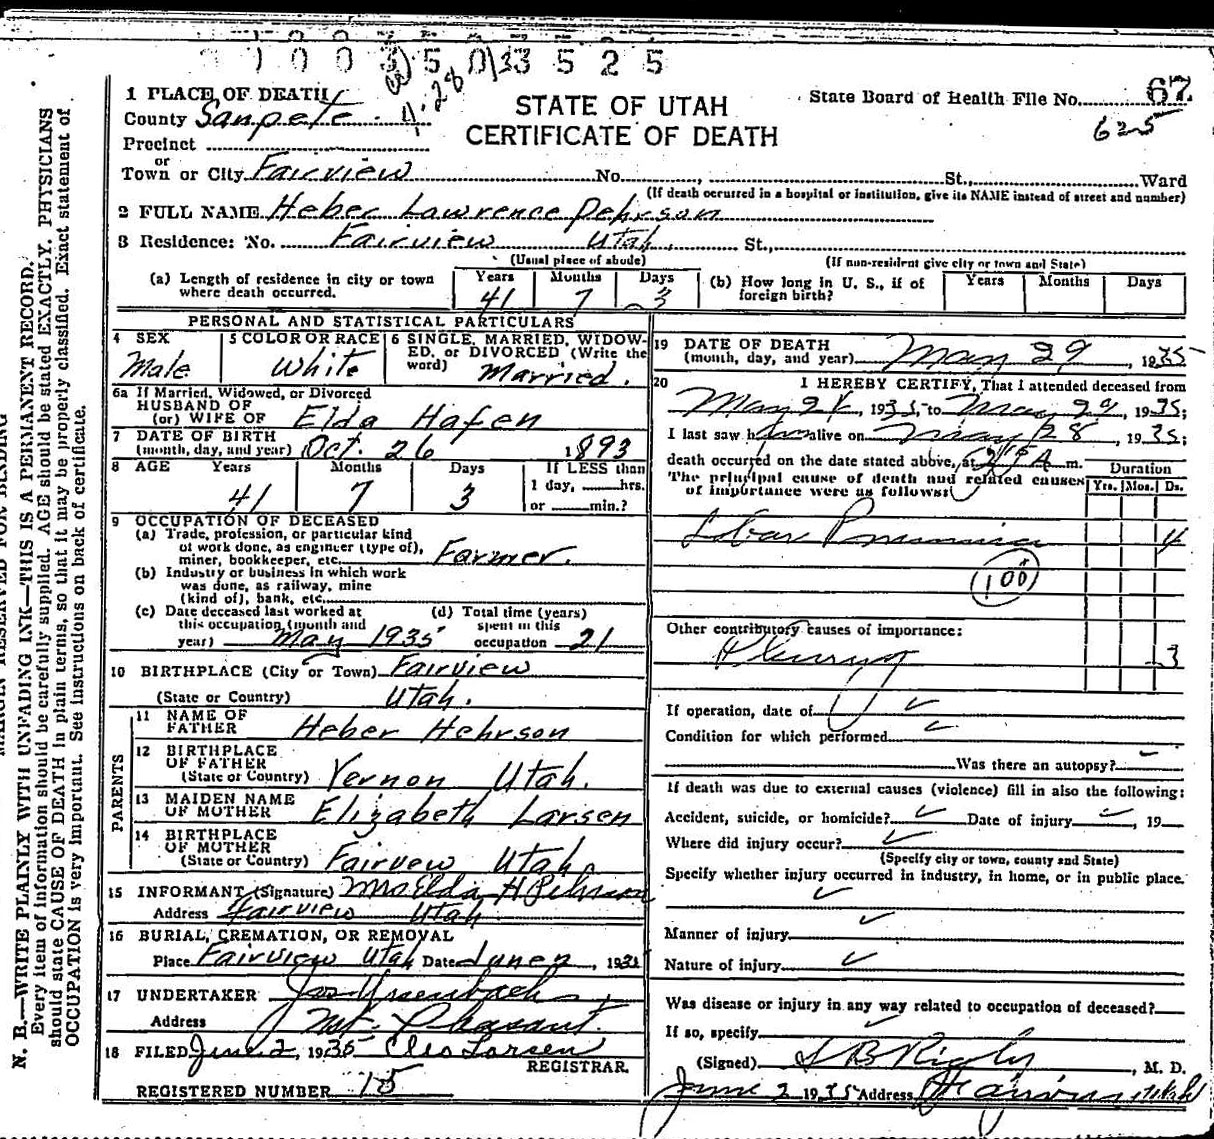 1003503525
4-28
1 PLACE OF DEATH
County Sanpete
STATE OF UTAH
CERTIFICATE OF DEATH
State Board of Health File No. 67
625
Precinct
or
Town or City Fairview No. , St., Ward
(If death occurred in a hospital or institution, give its NAME instead of street and number)
2 FULL NAME Heber Lawrence Pehrson
3 Residence: No. Fairview Utah. St.,
(Usual place of abode) (If non-resident give city or town and State)
(a) Length of residence in city or town where death occurred. Years 41 Months 7 Days 3
(b) How long in U. S., if of foreign birth? Years Months Days
PERSONAL AND STATISTICAL PARTICULARS
4 SEX Male
5 COLOR OR RACE White
6 SINGLE, MARRIED, WIDOWED, or DIVORCED (Write the word) Married.
6a If Married, Widowed, or Divorced
HUSBAND OF
(or) WIFE OF Elda Hafen
7 DATE OF BIRTH
(month, day, and year) Oct. 26 1893
8 AGE Years Months Days If LESS than
41 7 3 1 day, hrs.
or min.?
9 OCCUPATION OF DECEASED
(a) Trade, profession, or particular kind
of work done, as engineer (type of),
miner, bookkeeper, etc. Farmer.
(b) Industry or business in which work
was done, as railway, mine
(kind of), bank, etc.
(c) Date deceased last worked at
this occupation (month and
year) May 1935
(d) Total time (years)
spent in this
occupation 21
10 BIRTHPLACE (City or Town) Fairview
(State or Country) Utah.
PARENTS
11 NAME OF
FATHER Heber Hehrson
12 BIRTHPLACE
OF FATHER
(State or Country) Vernon Utah.
13 MAIDEN NAME
OF MOTHER Elizabeth Larsen
14 BIRTHPLACE
OF MOTHER
(State or Country) Fairvew Utah
15 INFORMANT (Signature) Mrs Elda H Pehrson
Address Fairview Utah
16 BURIAL, CREMATION, OR REMOVAL
Place Fairview Utah Date June 2, 1935
17 UNDERTAKER
Address Mt. Pleasant.
18 FILED June 2, 1935 Cleo Larsen
REGISTRAR.
REGISTERED NUMBER 15
19 DATE OF DEATH
(month, day, and year) May 29, 1935
20 I HEREBY CERTIFY, That I attended deceased from
May 24, 1935, to May 29, 1935;
I last saw him alive on May 28, 1935;
death occurred on the date stated above, at A m.
The principal cause of death and related causes
of importance were as follows:
Duration
Yrs. Mos. Ds.
Lobar Pneumonia 4
100
Other contributory causes of importance:
Pleurisy 3
If operation, date of
Condition for which performed
Was there an autopsy?
If death was due to external causes (violence) fill in also the following:
Accident, suicide, or homicide? Date of injury , 19
Where did injury occur?
(Specify city or town, county and State)
Specify whether injury occurred in industry, in home, or in public place.
Manner of injury
Nature of injury
Was disease or injury in any way related to occupation of deceased?
If so, specify
(Signed) S B Rigby, M. D.
June 2 1935 Address Fairview Utah
MARGIN RESERVED FOR BINDING
N. B.—WRITE PLAINLY WITH UNFADING INK—THIS IS A PERMANENT RECORD.
Every item of information should be carefully supplied. AGE should be stated EXACTLY. PHYSICIANS
should state CAUSE OF DEATH in plain terms, so that it may be properly classified. Exact statement of
OCCUPATION is very important. See instructions on back of certificate.